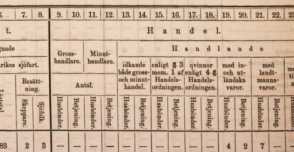 6. 7. 8. 9. 10. 11. 12. 13. 14. 15. 16. 17. 18. 19. 20. 21. 22.
t. Handel.
Handlande
rikes sjöfart.
Gross-
handlare.
Minut-
handlare.
idkande
både gross-
och minut-
handel.
enligt § 3
mom. 1 af
Handels-
ordningen.
qvinnor
enligt 4 §
Handels-
ordningen.
med in-
och ut-
ländska
varor.
med
landt-
manna-
varor.
Besätt-
ning.
Antal.
Skeppare.
Sjöfolk.
Husbönder.
Betjening.
Husbönder.
Betjening.
Husbönder.
Betjening.
Husbönder.
Betjening.
Husbönder.
Betjening.
Husbönder.
Betjening.
Husbönder.
Betjening.
2 3 — — — — — — — — — — 4 2 7 —